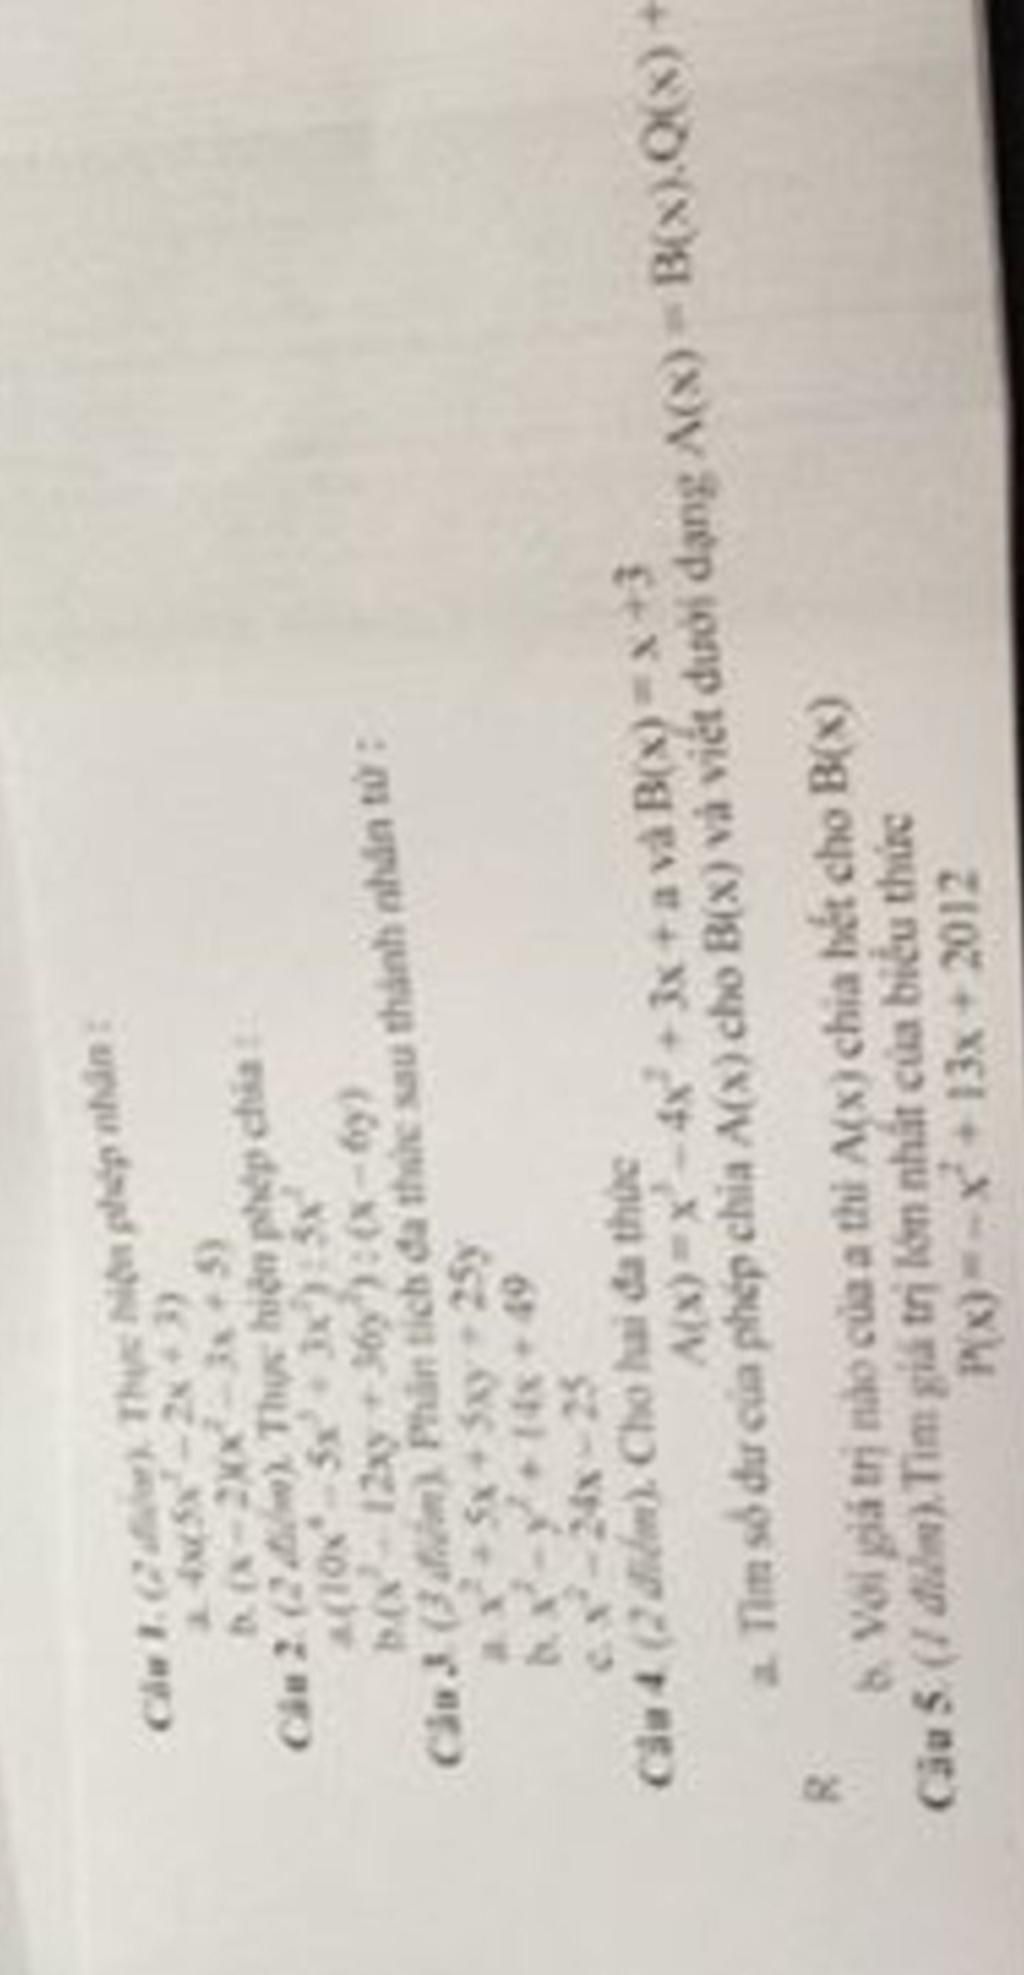 Câu 1. (2 điểm). Thực hiện phép nhân :
a. 4x(5x² – 2x + 3)
b. (x – 2)(x² – 3x + 5)
Câu 2. (2 điểm). Thực hiện phép chia :
a.(10x⁴ – 5x³ + 3x²) : 5x²
b.(x² – 12xy + 36y²) : (x – 6y)
Câu 3. (3 điểm). Phân tích đa thức sau thành nhân tử :
a. x² + 5x + 5xy + 25y
b. x² – y² + 14x + 49
c. x² – 24x – 25
Câu 4. (2 điểm). Cho hai đa thức
A(x) = x³ – 4x² + 3x + a và B(x) = x +3
a. Tìm số dư của phép chia A(x) cho B(x) và viết dưới dạng A(x) = B(x).Q(x) +
R
b. Với giá trị nào của a thì A(x) chia hết cho B(x)
Câu 5. (1 điểm).Tìm giá trị lớn nhất của biểu thức
P(x) = – x² + 13x + 2012